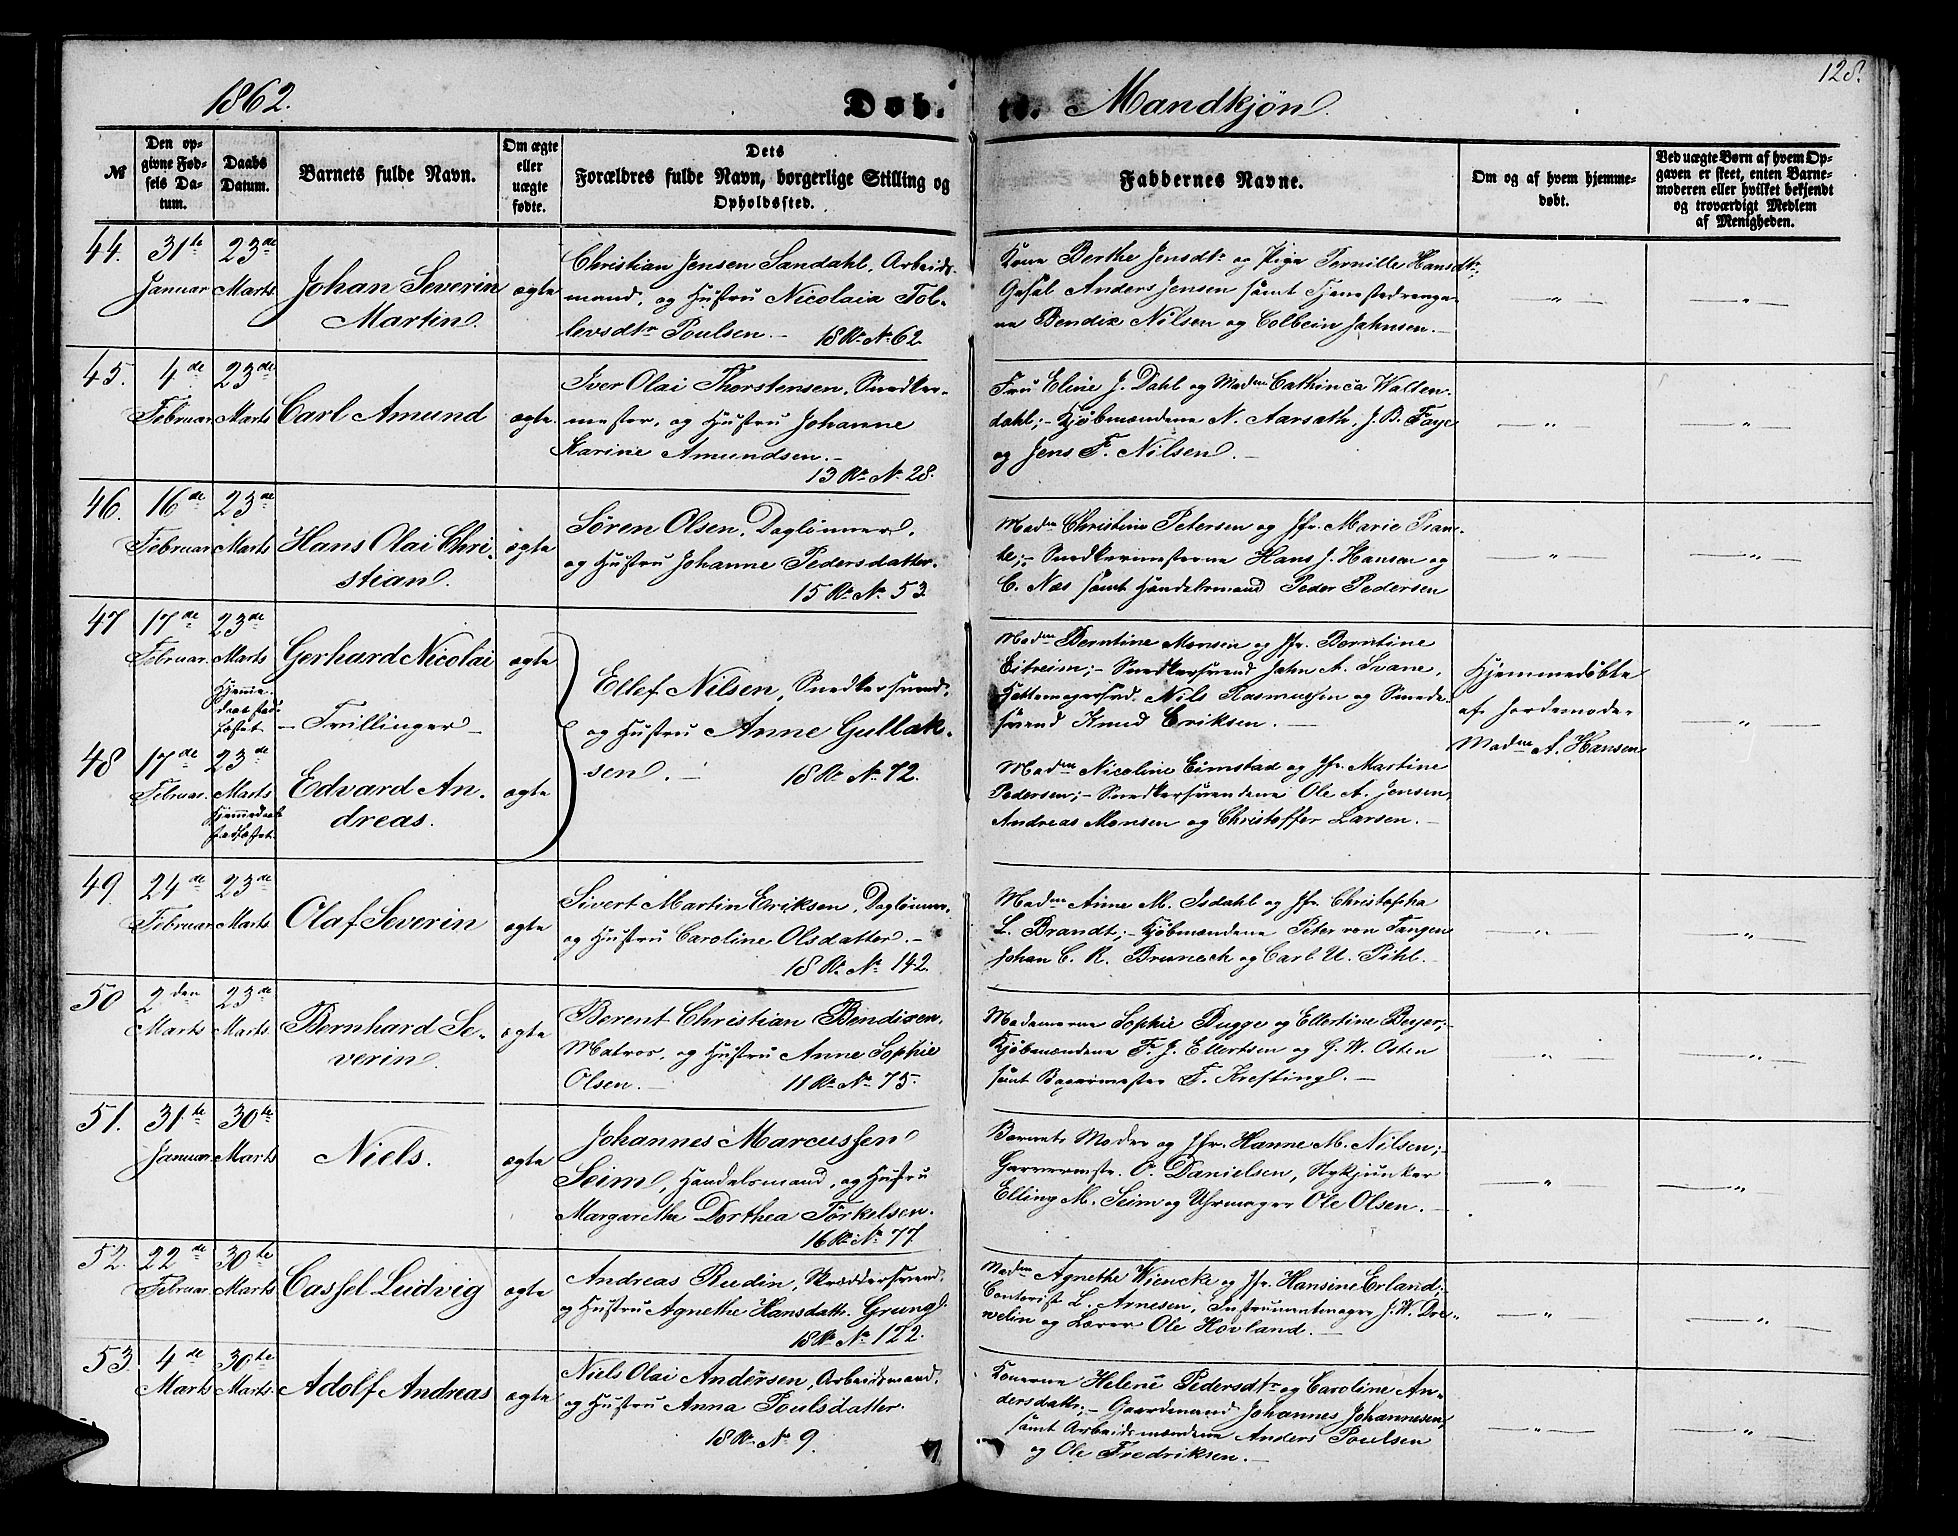 128.
1862. Døb. te. Mandkjøn.
№
Den opgivne Fødsels Datum.
Daabs Datum.
Barnets fulde Navn.
Om ægte eller uægte fødte.
Dets Forældres fulde Navn, borgerlige Stilling og Opholdssted.
Faddernes Navne.
Om og af hvem hjemmedøbt.
Ved uægte Børn af hvem Opgaven er skeet, enten Barnemoderen eller hvilket bekjendt og troværdigt Medlem af Menigheden.
44. 31te Januar 23de Marts
Johan Severin
Martin.
ægte
Christian Jensen Sandahl, Arbeids-
mand, og Hustru Nicolaia Tol-
levsdtr Poulsen. – 18 Rd. No 62.
Kone Berthe Jensdtr og Pige Pernille Hansdtr,
Gesel Anders Jensen samt Tjenestedrenge-
ne Bendix Nilsen og Colbein Jahnsen. –
45. 4de Februar 23de Marts
Carl Amund
ægte.
Iver Olai Thorstensen, Snedker-
mester, og Hustru Johanne
Karine Amundsen. –
13 Rd. No 28.
Fru Eline J. Dahl og Madm Cathinca Wallen-
dahl; – Kjøbmændene N. Aarsath, J. B. Faye
og Jens F. Nilsen. –
46. 16de Februar 23de Marts
Hans Olai Chri-
stian.
ægte
Søren Olsen, Daglønner,
og Hustru Johanne Pedersdatter.
15 Rd. No 53.
Madm Christine Petersen og Jfr. Marie Tran-
te; – Snedkermesterne Hans J. Hansen og
C. Næs samt Handelsmand Peder Pedersen
47 17de Februar. 23de Marts
Hjemme-
daab stad-
fæstet
Gerhard Nicolai
ægte
– Tvillinger –
Ellef Nilsen, Snedkersvend,
og Hustru Anne Gullak-
sen. – 18 Rd. No 72.
Madm Berntine Monsen og Jfr. Berntine
Eitreim; – Snedkersvend Jahn A. Svane,
Hattemagersvd. Nils Rasmussen og Smede-
svend Knud Eriksen. –
Hjemmedøbte
af Jordemoder
Madme A. Hansen
48 17de Februar. 23de Marts
Hjemmedaab
stadfæstet
Edvard An-
dreas.
ægte
Madm Nicoline Eimstad og Jfr. Martine
Pedersen; – Snedkersvendene Ole A. Jensen,
Andreas Monsen og Christoffer Larsen. –
49. 24de Februar 23de Marts
Olaf Severin
ægte
Sivert Martin Eriksen, Daglønner,
og Hustru Caroline Olsdatter. –
18 Rd. No 142.
Madm Anne M. Isdahl og Jfr. Christopha
L. Brandt; – Kjøbmændene Peter von Tangen
Johan C. R. Brunech og Carl U. Pihl. –
50 2den Marts 23de Marts
Bernhard Se-
verin.
ægte
Berent Christian Bendixen,
Matros, og Hustru Anne Sophie
Olsen. – 11 Rd. No 75.
Madamerne Sophie Bugge og Ellertine Beyer; –
Kjøbmændene F. J. Ellertsen og G. W. Osten
samt Bagermester F. Krefting. –
51. 31te Januar. 30te Marts
Niels.
ægte
Johannes Marcussen
Seim, Handelsmand, og Hustru
Margarethe Dorthea Torkelsen.
16 Rd. No 77.
Barnets Moder og Jfr. Hanne M. Nilsen; –
Garvermstr. O. Danielsen, Styrkjunker
Elling M. Seim og Uhrmager Ole Olsen. –
52. 22de Februar. 30te Marts
Cassel Ludvig
ægte
Andreas Rudin, Skræddersvend,
og Hustru Agnethe Hansdatt. Grung.
18 Rd. No 122.
Madm Agnethe Wiencke og Jfr. Hansine Erland; –
Contorist L. Arnesen, Instrumentmager J. W. Dre-
welin og Lærer Ole Hovland. –
53. 4de Marts 30te Marts.
Adolf Andreas
ægte
Niels Olai Andersen, Arbeidsmand,
og Hustru Anna Poulsdatter.
18 Rd. No 9.
Konerne Helene Pedersdtr og Caroline An-
dersdatt; – Gaardmand Johannes Johannesen,
samt Arbeidsmændene Anders Poulsen
og Ole Fredriksen. –